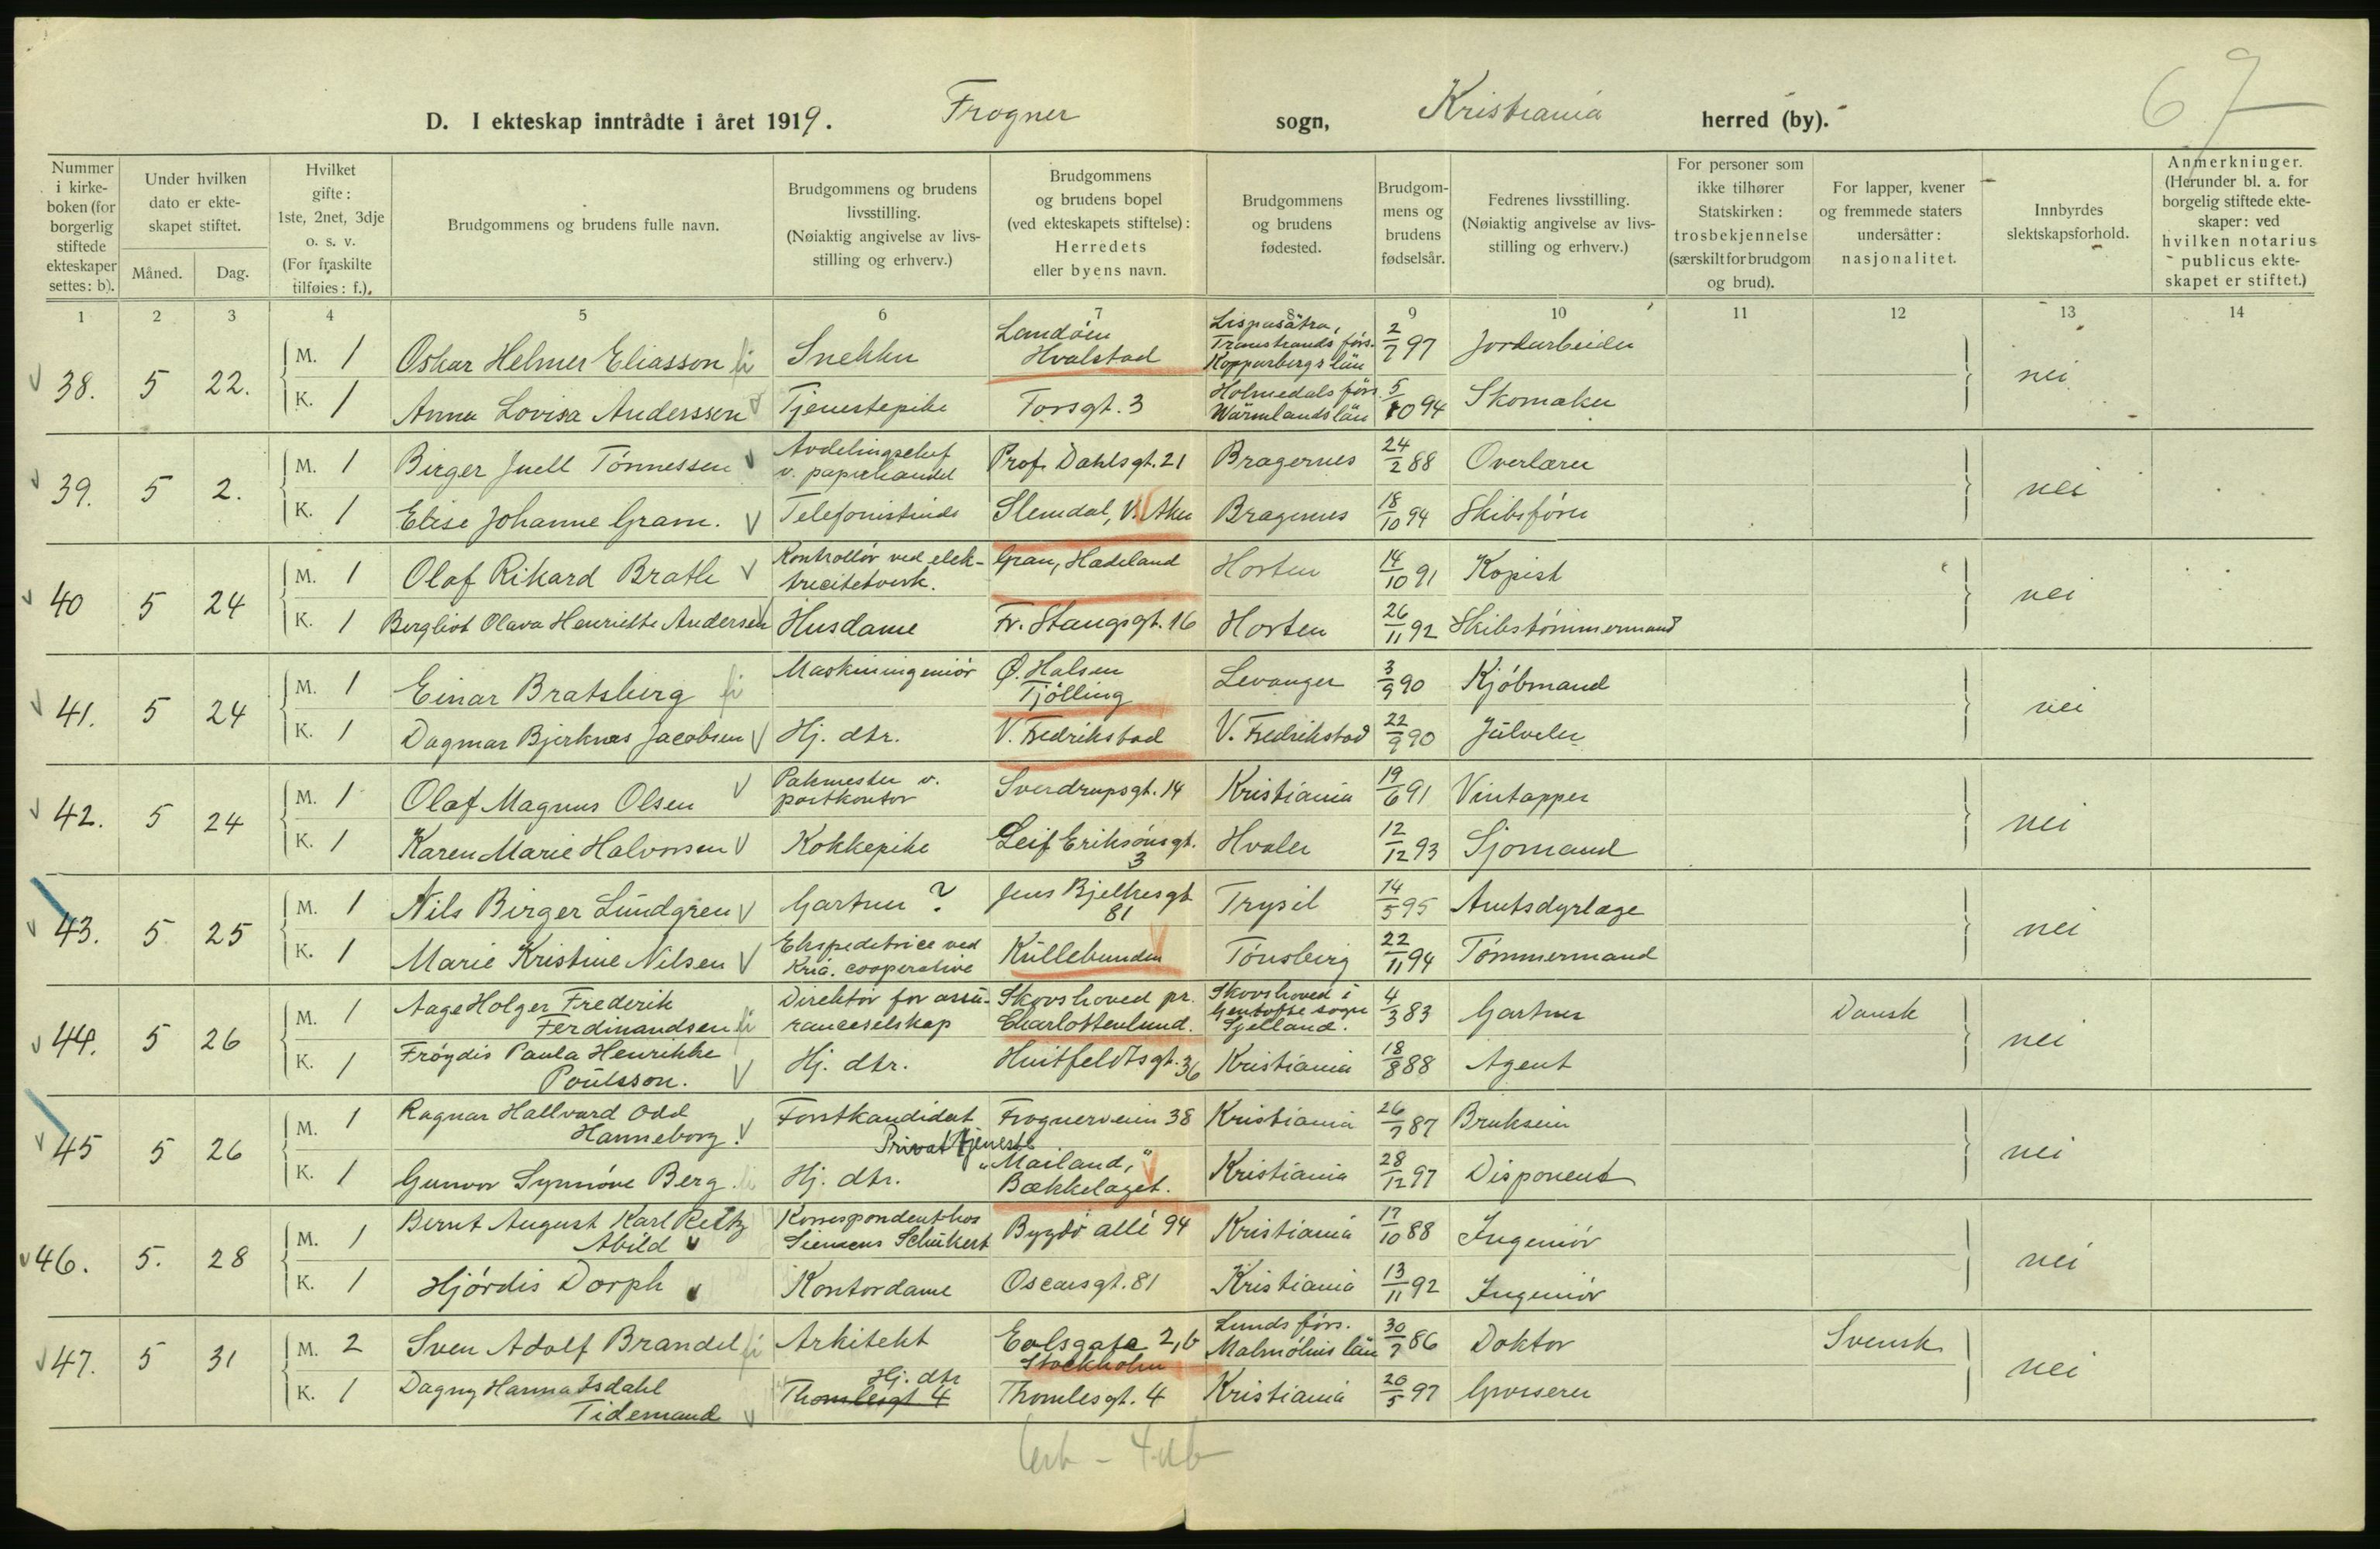 67
D. I ekteskap inntrådte i året 1919. Frogner sogn, Kristiania herred (by).
Nummer i kirke-boken (for borgerlig stiftede ekteskaper settes: b). | Under hvilken dato er ekte-skapet stiftet. Måned. Dag. | Hvilket gifte: 1ste, 2net, 3dje o. s. v. (For fraskilte tilføies: f.). | Brudgommens og brudens fulle navn. | Brudgommens og brudens livsstilling. (Nøiaktig angivelse av livs-stilling og erhverv.) | Brudgommens og brudens bopel (ved ekteskapets stiftelse): Herredets eller byens navn. | Brudgommens og brudens fødested. | Brudgom-mens og brudens fødselsår. | Fedrenes livsstilling. (Nøiaktig angivelse av livs-stilling og erhverv.) | For personer som ikke tilhører Statskirken: trosbekjennelse (særskilt for brudgom og brud). | For lapper, kvener og fremmede staters undersåtter: nasjonalitet. | Innbyrdes slektskapsforhold. | Anmerkninger. (Herunder bl. a. for borgelig stiftede ekte-skaper: ved hvilken notarius publicus ekte-skapet er stiftet.)
1 2 3 4 5 6 7 8 9 10 11 12 13 14
38. 5 22. M. 1 Oskar Helmer Eliasson Snekker Landøen Hvalstad Transtrands førs. Kopparbergs län 2/7 97 Jordarbeider nei
K. 1 Anna Lovisa Anderssen Tjenestepike Torsgt. 3 Holmedals förs. Wärmlands län 5/10 94 Skomaker
39. 5 2. M. 1 Birger Juell Tønnessen Avdelingschef v. papirhandel Prof. Dahlsgt. 21 Bragernes 24/2 88 Overlærer nei
K. 1 Elise Johanne Gram. Telefonistinde Slemdal, V. Aker Bragernes 18/10 94 Skibsfører
40 5 24 M. 1 Olaf Rikard Bratli Kontrollør ved elek-tricitetverk. Gran, Hadeland Horten 14/10 91 Kopist nei
K. 1 Bergliot Olava Henriette Andersen Husdame Fr. Stangsgt. 16 Horten 26/11 92 Skibstømmermand
41. 5 24 M. 1 Einar Bratsberg Maskiningeniør Ø. Halsen Tjølling Levanger 3/9 90 Kjøbmand nei
K. 1 Dagmar Bjerknæs Jacobsen Hj. dtr. V. Fredrikstad V. Fredrikstad 22/9 90 Juveler
42. 5 24 M. 1 Olaf Magnus Olsen Pakmester v. postkontor Sverdrupsgt. 14 Kristiania 19/6 91 Vintapper nei
K. 1 Karen Marie Halvorsen Kokkepike Leif Eriksøns gt. 3 Hvaler 12/12 93 Sjømand
43. 5 25 M. 1 Nils Birger Lundgren Gartner ? Jens Bjelkesgt 81 Trysil 14/5 95 Amtsdyrlæge nei
K. 1 Marie Kristine Nilsen Ekspeditrice ved Kria. cooperative Kullebunden Tønsberg 22/11 94 Tømmermand
44. 5 26 M. 1 Aage Holger Frederik Ferdinandsen Direktør for assu-ranceselskap Skovshoved pr. Charlottenlund. Skovshoved i Gentofte sogn Sjelland. 4/3 83 Gartner Dansk nei
K. 1 Frøydis Paula Henrikke Poulsson. Hj. dtr. Huitfeldtsgt. 36 Kristiania 18/8 88 Agent
45 5 26 M. 1 Ragnar Hallvard Odd Hanneborg. Forstkandidat Privat tjeneste Frognerveien 38 Kristiania 26/7 87 Brukseier nei
K. 1 Gunvor Synnøve Berg Hj. dtr. "Mailand," Bækkelaget. Kristiania 28/12 97 Disponent
46. 5. 28 M. 1 Bernt August Karl Reitz Abild Korrespondent hos Siemens Schukert Bygdø allé 94 Kristiania 17/10 88 Ingeniør nei
K. 1 Hjørdis Dorph Kontordame Oscarsgt. 81 Kristiania 13/11 92 Ingeniør
47. 5 31 M. 2 Sven Adolf Brandel Arkitekt 2, b Stockholm Lunds førs. Malmöhus län 30/7 86 Doktor Svensk nei
K. 1 Dagny Hanna Isdahl Tidemand Hj. dtr Thomlesgt 4 Thomlesgt. 4 Kristiania 20/5 97 Grosserer